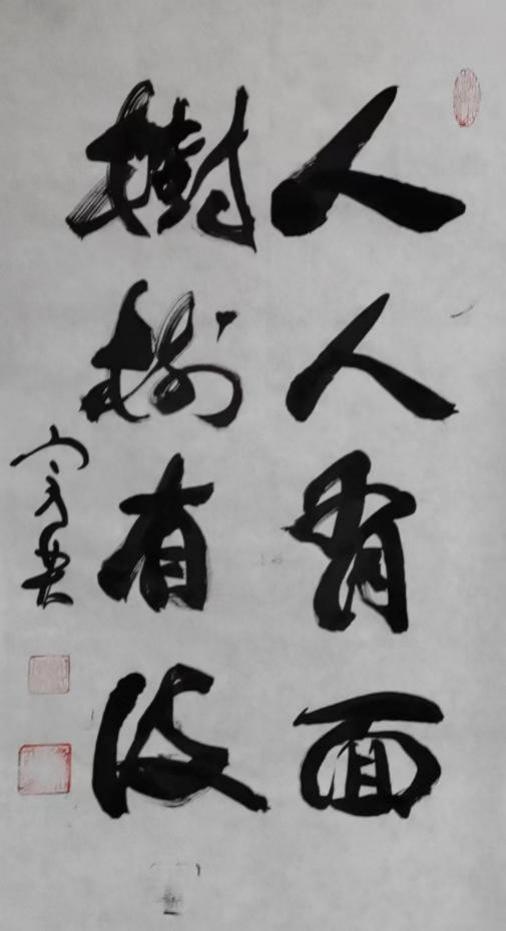 人人有面
樹樹有皮